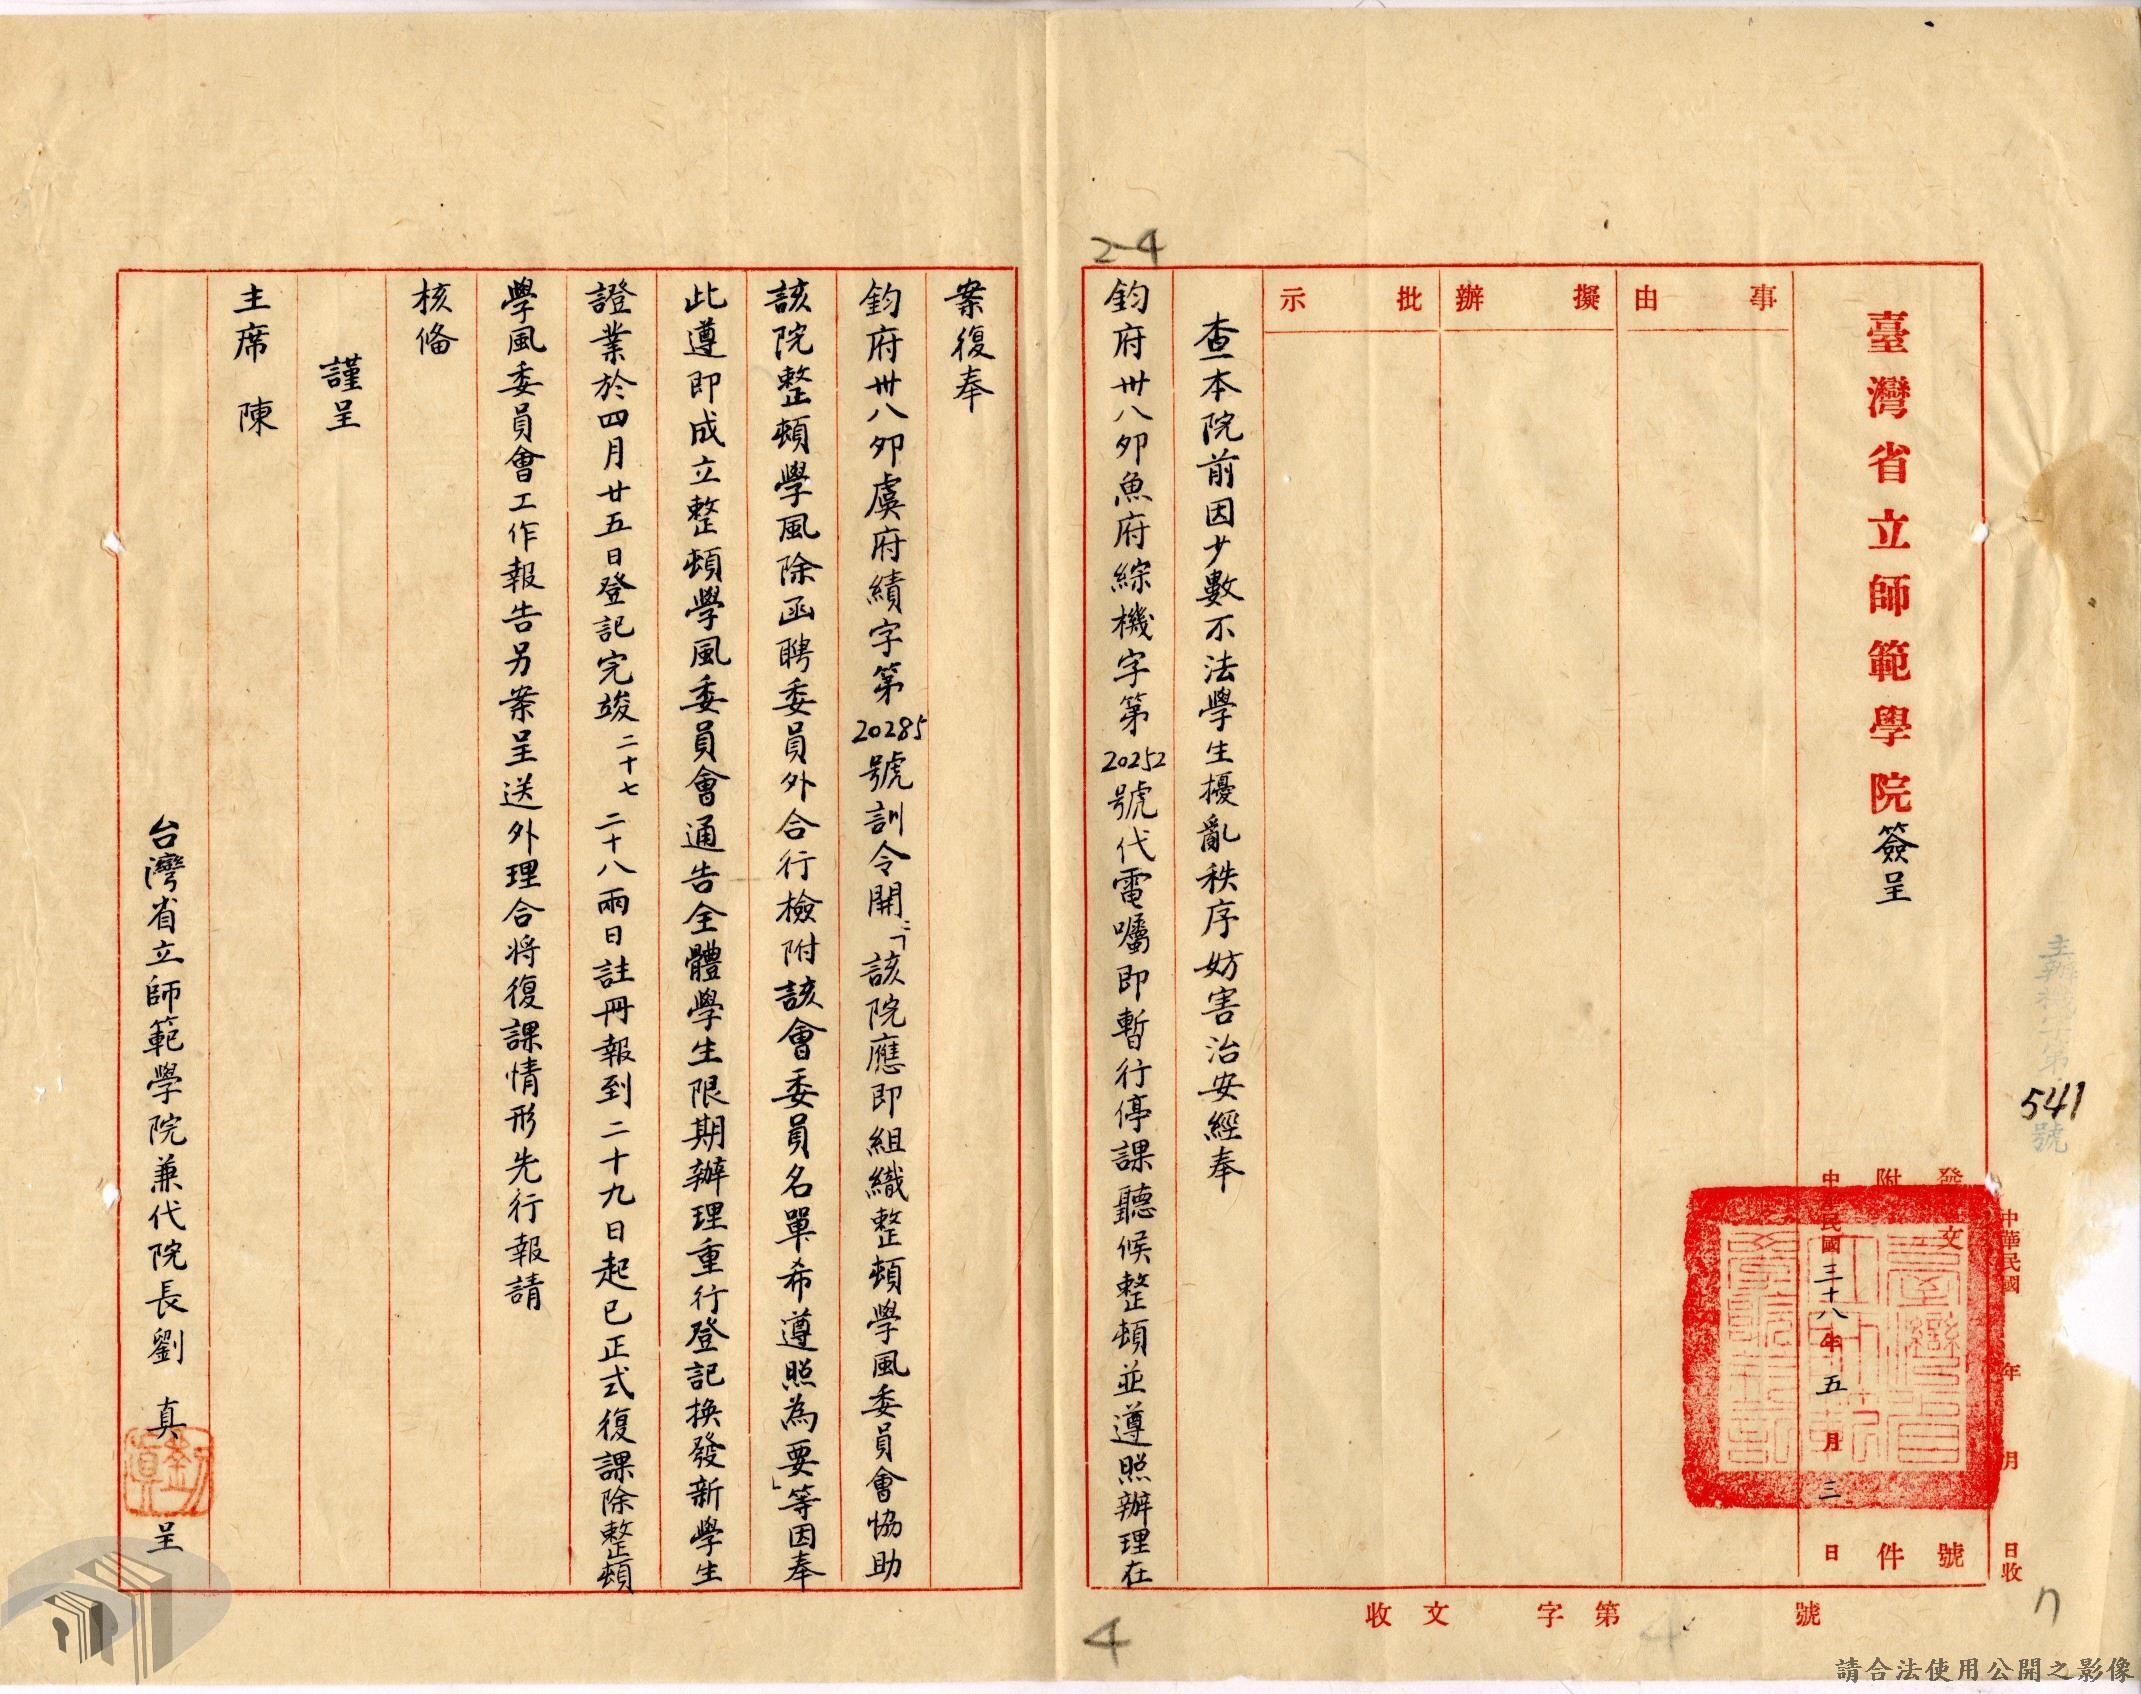 臺灣省立師範學院簽呈
發文號
附件
中華民國三十八年五月三日
中華民國年月日收
541號
事由
擬辦
批示
查本院前因少數不法學生擾亂秩序妨害治安經奉
鈞府卅八卯魚府綜機字第20252號代電囑即暫行停課聽候整頓並遵照辦理在
案復奉
鈞府卅八卯虞府績字第20285號訓令開：「該院應即組織整頓學風委員會協助
該院整頓學風除函聘委員外合行檢附該會委員名單希遵照為要」等因奉
此遵即成立整頓學風委員會通告全體學生限期辦理重行登記換發新學生
證業於四月廿五日登記完竣二十七二十八兩日註冊報到二十九日起已正式復課除整頓
學風委員會工作報告另案呈送外理合將復課情形先行報請
核備
謹呈
主席 陳
台灣省立師範學院兼代院長劉 真 呈
劉真
收文 字第 號
2-4
4
請合法使用公開之影像